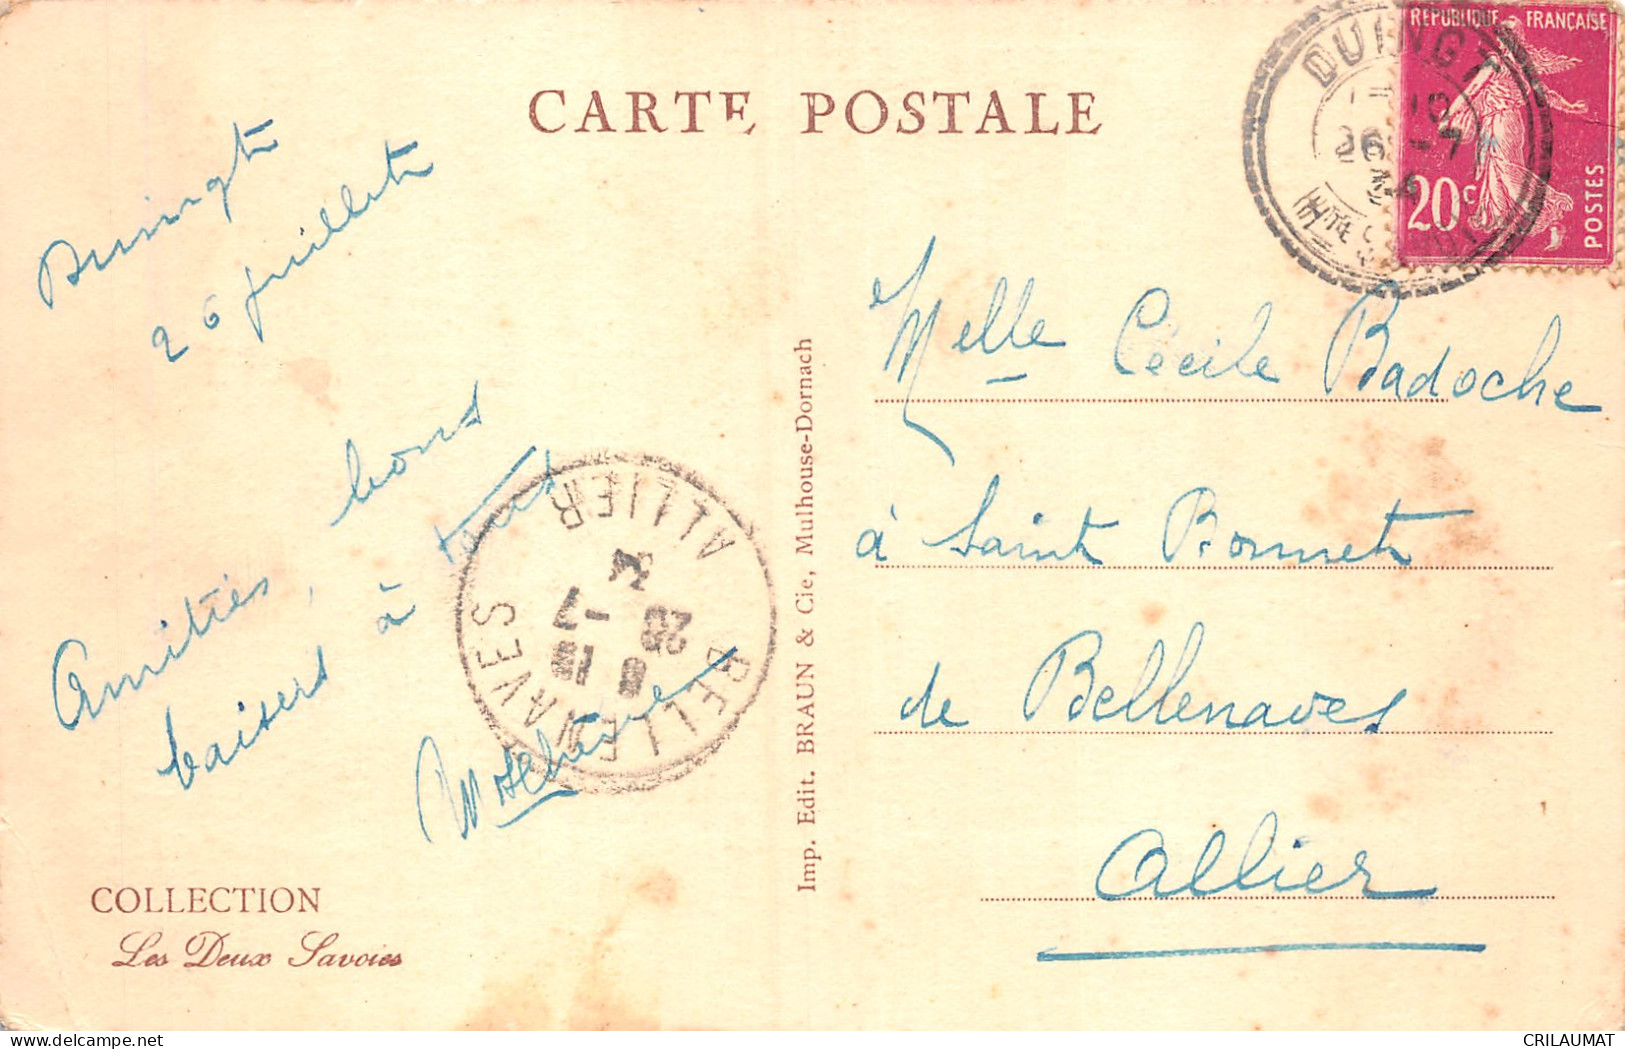 CARTE POSTALE
REPUBLIQUE FRANÇAISE
20c
POSTES
DUINGT
26 -7
34
Hte SAVOIE
Duingt
26 juillet
Amitiés, bons
baisers à tous
Melle Cécile Badoche
à Saint Bonnet
de Bellenaves
Allier
BELLENAVES
ALLIER
8 15
28 -7
34
Imp. Edit. BRAUN & Cie, Mulhouse-Dornach
COLLECTION
Les Deux Savoies
delcampe.net
CRILAUMAT